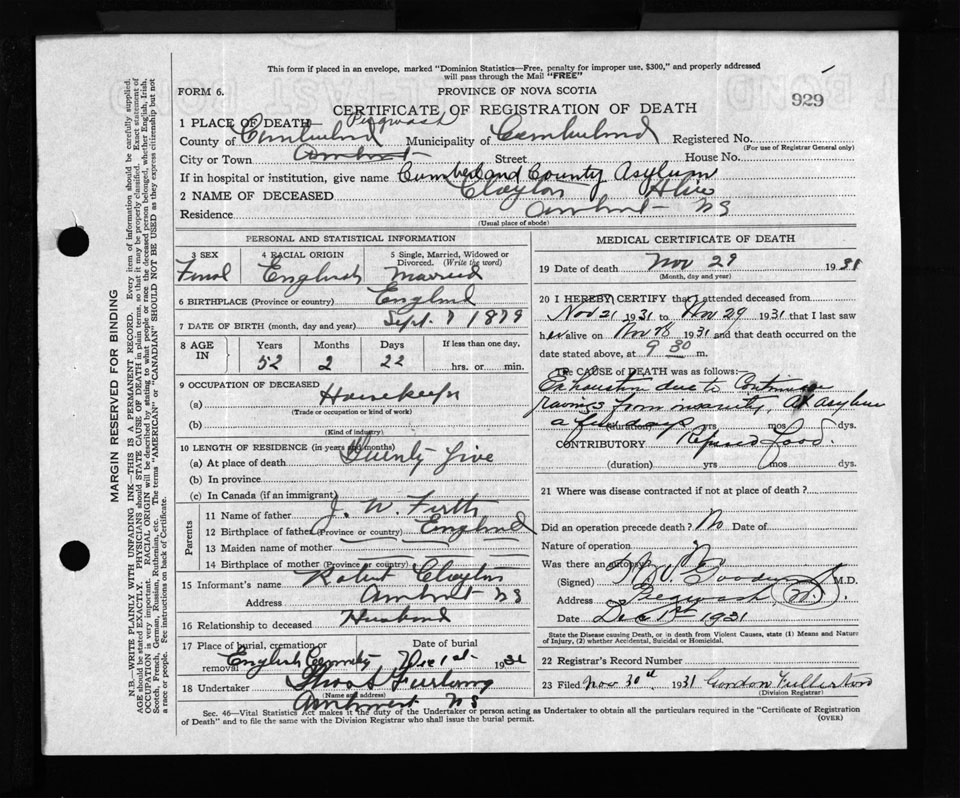 This form if placed in an envelope, marked "Dominion Statistics—Free, penalty for improper use, $300," and properly addressed
will pass through the Mail "FREE"
FORM 6.
PROVINCE OF NOVA SCOTIA
929
CERTIFICATE OF REGISTRATION OF DEATH
1 PLACE OF DEATH Pugwash
County of Cumberland Municipality of Cumberland Registered No.
(For use of Registrar General only)
City or Town Amherst Street House No.
If in hospital or institution, give name Cumberland County Asylum
2 NAME OF DECEASED Clayton Alice
Residence Amherst NS
(Usual place of abode)
PERSONAL AND STATISTICAL INFORMATION
3 SEX 4 RACIAL ORIGIN 5 Single, Married, Widowed or
Divorced. (Write the word)
Femal English Married
6 BIRTHPLACE (Province or country) England
7 DATE OF BIRTH (month, day and year) Sept. 7 1879
8 AGE IN Years Months Days If less than one day,
52 2 22 hrs. or min.
9 OCCUPATION OF DECEASED
(a) Housekeeper
(Trade or occupation or kind of work)
(b)
(Kind of industry)
10 LENGTH OF RESIDENCE (in years and months)
(a) At place of death Twenty five
(b) In province
(c) In Canada (if an immigrant)
Parents
11 Name of father J. W. Firth
12 Birthplace of father (Province or country) England
13 Maiden name of mother
14 Birthplace of mother (Province or country)
15 Informant's name Robert Clayton
Address Amherst NS
16 Relationship to deceased Husband
17 Place of burial, cremation or removal Date of burial
English Cemetry Dec 1st 1931
18 Undertaker Thos S Furlong
(Name and address)
Amherst NS
MEDICAL CERTIFICATE OF DEATH
19 Date of death Nov 29 1931
(Month, day and year)
20 I HEREBY CERTIFY that I attended deceased from
Nov 21 1931 to Nov 29 1931 that I last saw
her alive on Nov 28 1931 and that death occurred on the
date stated above, at 9 30 m.
The CAUSE of DEATH was as follows:
Exhaustion due to Continuous
raving from insanity. At asylum
a few days (duration) yrs mos dys.
CONTRIBUTORY Refused food.
(duration) yrs mos dys.
21 Where was disease contracted if not at place of death?
Did an operation precede death? No Date of
Nature of operation
Was there an autopsy No
(Signed) M.D.
Address Pugwash N.S.
Date Dec 1st 1931
State the Disease causing Death, or in death from Violent Causes, state (1) Means and Nature
of Injury, (2) whether Accidental, Suicidal or Homicidal.
22 Registrar's Record Number
23 Filed Nov 30th 1931 Gordon Fullerton
(Division Registrar)
Sec. 46—Vital Statistics Act makes it the duty of the Undertaker or person acting as Undertaker to obtain all the particulars required in the "Certificate of Registration
of Death" and to file the same with the Division Registrar who shall issue the burial permit. (OVER)
MARGIN RESERVED FOR BINDING
N.B.—WRITE PLAINLY WITH UNFADING INK—THIS IS A PERMANENT RECORD. Every item of information should be carefully supplied.
AGE should be stated EXACTLY. PHYSICIANS should STATE CAUSE OF DEATH in plain terms, so that it may be properly classified. Exact statement of
OCCUPATION is very important. RACIAL ORIGIN will be described by stating to what people or race the deceased person belonged, whether English, Irish,
Scotch, French, German, Russian, Ruthenian, etc. The terms "AMERICAN" or "CANADIAN" SHOULD NOT BE USED as they express citizenship but not
a race or people. See instructions on back of Certificate.